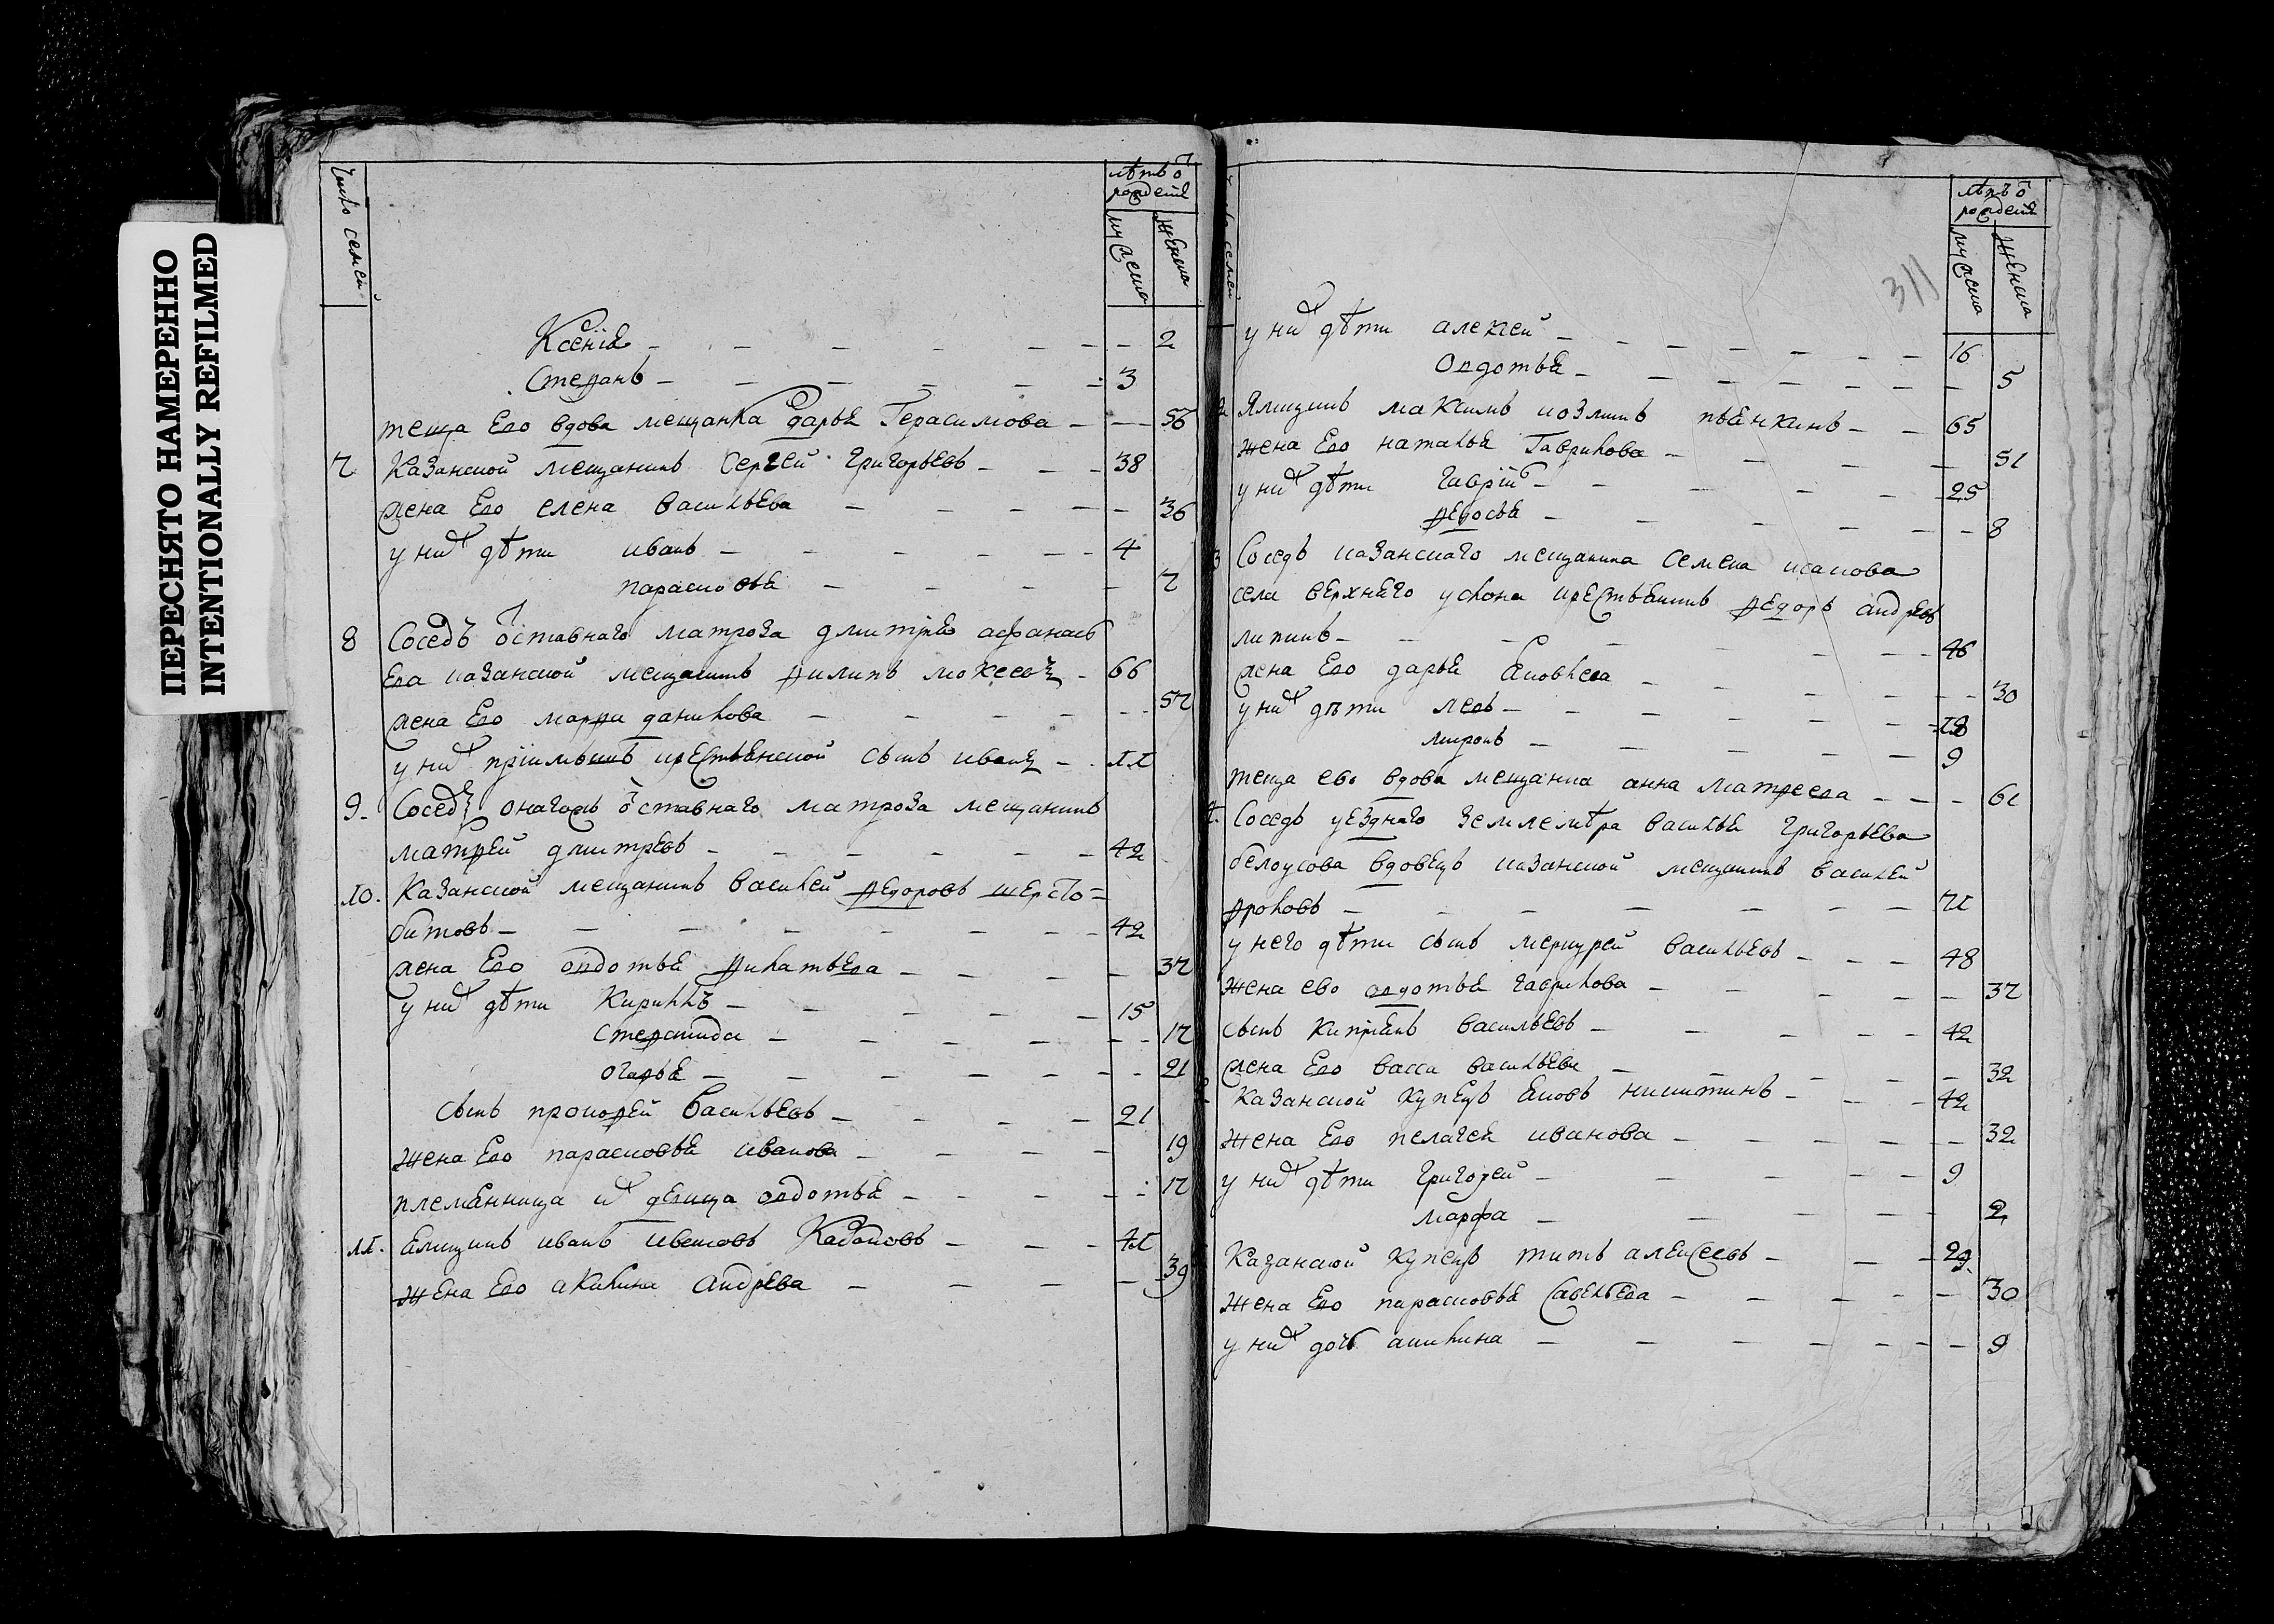 ПЕРЕСНЯТО НАМЕРЕННО
INTENTIONALLY REFILMED
число семей
лѣтъ ѿ
рождения
мужеска
женска
Ксения 2
Стефанъ 3
теща ево вдова мещанка дарья Герасимова 56
7 Казанской мещанинъ Сергѣй Григорьевъ 38
жена ево елена Васильева 36
у них дѣти иванъ 4
парасковья 7
8 Соседъ ѿставнаго матроза дмитрия афанась
ева казанской мещанинъ филипъ мокеевъ 66
жена ево марфа данилова 57
у них приимышъ крестьянской сынъ иванъ 11
9. Соседъ онагожъ ѿставнаго матроза мещанинъ
матфей дмитревъ 42
10. Казанской мещанинъ василей федоровъ шерсто=
битовъ 42
жена ево овдотья филатьева 37
у них дѣти Кирилъ 15
стефанида 17
огафья 21
сынъ прокофей васильевъ 21
жена ево парасковья иванова 19
племянница их девица овдотья 17
11. ямщикъ иванъ ивановъ Кабановъ 41
жена ево акилина андрева 39
семей
лѣтъ ѿ
рождения
мужеска
женска
311
у них дѣти алексей 16
Овдотья 5
Ямщикъ максимъ козминъ пьянкинъ 65
жена ево наталья Гаврилова 51
у них дѣти Гаврило 25
федосья 8
3 Соседъ казанскаго мещанина семена исакова
села верхняго услона крестьянинъ федоръ андревъ
липинъ 46
жена ево дарья яковлева 30
у них дѣти левъ 18
миронъ 9
теща ево вдова мещанка анна матфеева 61
4. Соседъ уезднаго землемѣра василья григорьева
белоусова вдовецъ казанской мещанинъ василей
фроловъ 71
у него дѣти сынъ меркурей васильевъ 48
жена ево овдотья гаврилова 37
сынъ киприянъ васильевъ 42
жена ево васса васильева 32
Казанской купецъ яковъ никитинъ 42
жена ево пелагея иванова 32
у них дѣти Григорей 9
марфа 2
Казанской купецъ титъ алексеевъ 29
жена ево парасковья савельева 30
у них дочь акилина 9